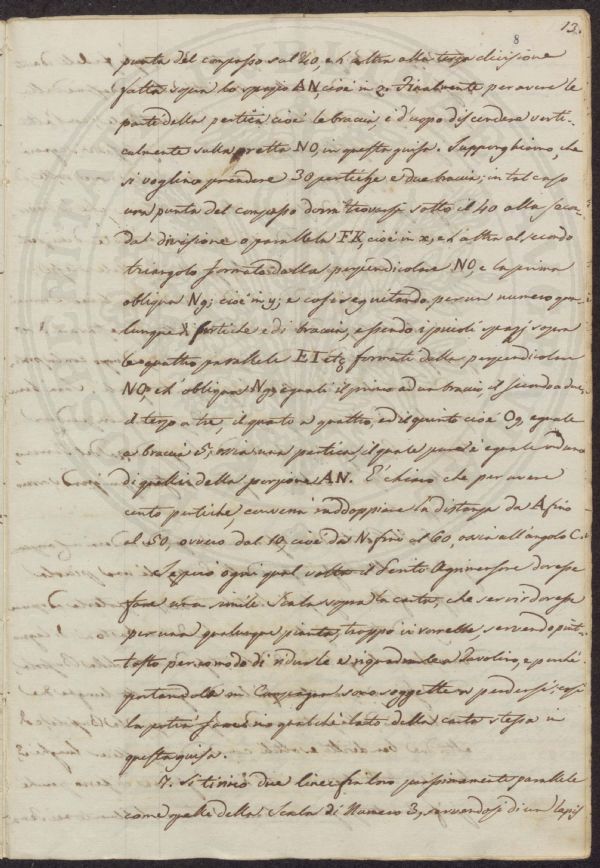 13.
8
punta del compasso sul 20, e l'altra alla terza divisione
fatta sopra lo spazio AN, cioè in z. Finalmente per avere le
parti della pertica cioè le braccia, è d'uopo discendere verti-
calmente sulla retta NO, in questa guisa. Supponghiamo, che
si voglino prendere 30 pertiche e due braccia; in tal caso
una punta del compasso dovrà trovarsi sotto il 40 alla secon-
da divisione o parallela FK, cioè in x, e l'altra al secondo
triangolo formato dalla perpendicolare NO, e la prima
obliqua Ng; cioè in y; e così seguitando per un numero qua-
lunque di pertiche e di braccia, essendo i piccoli spazj sopra
le quattro parallele EI etc formati dalla perpendicolare
NO, e l'obliqua Ng, eguali il primo ad un braccio, il secondo a due,
il terzo a tre, il quarto a quattro, ed il quinto cioè Og, eguale
a braccia 5, ossia una pertica, il quale pure è eguale ad uno
di quelli della porzione AN. È chiaro che per avere
cento pertiche, converrà raddoppiare la distanza da A fino
al 50, ovvero dal 10, cioè da N fino al 60, ossia all'angolo C.
Se però ogni qual volta il Perito Agrimensore dovesse
fare una simile Scala sopra la carta, che servir dovesse
per una qualunque pianta, troppo vi vorrebbe, servendo piut-
tosto per comodo di ridurle e ingrandirle a Tavolino, e perchè
portandole in Campagna sono soggette a perdersi; così
la potrà fare in qualche lato della carta stessa in
questa guisa.
7. Si tirino due linee fra loro parallele
come quelle della Scala di Numero 3, servendosi di un lapis